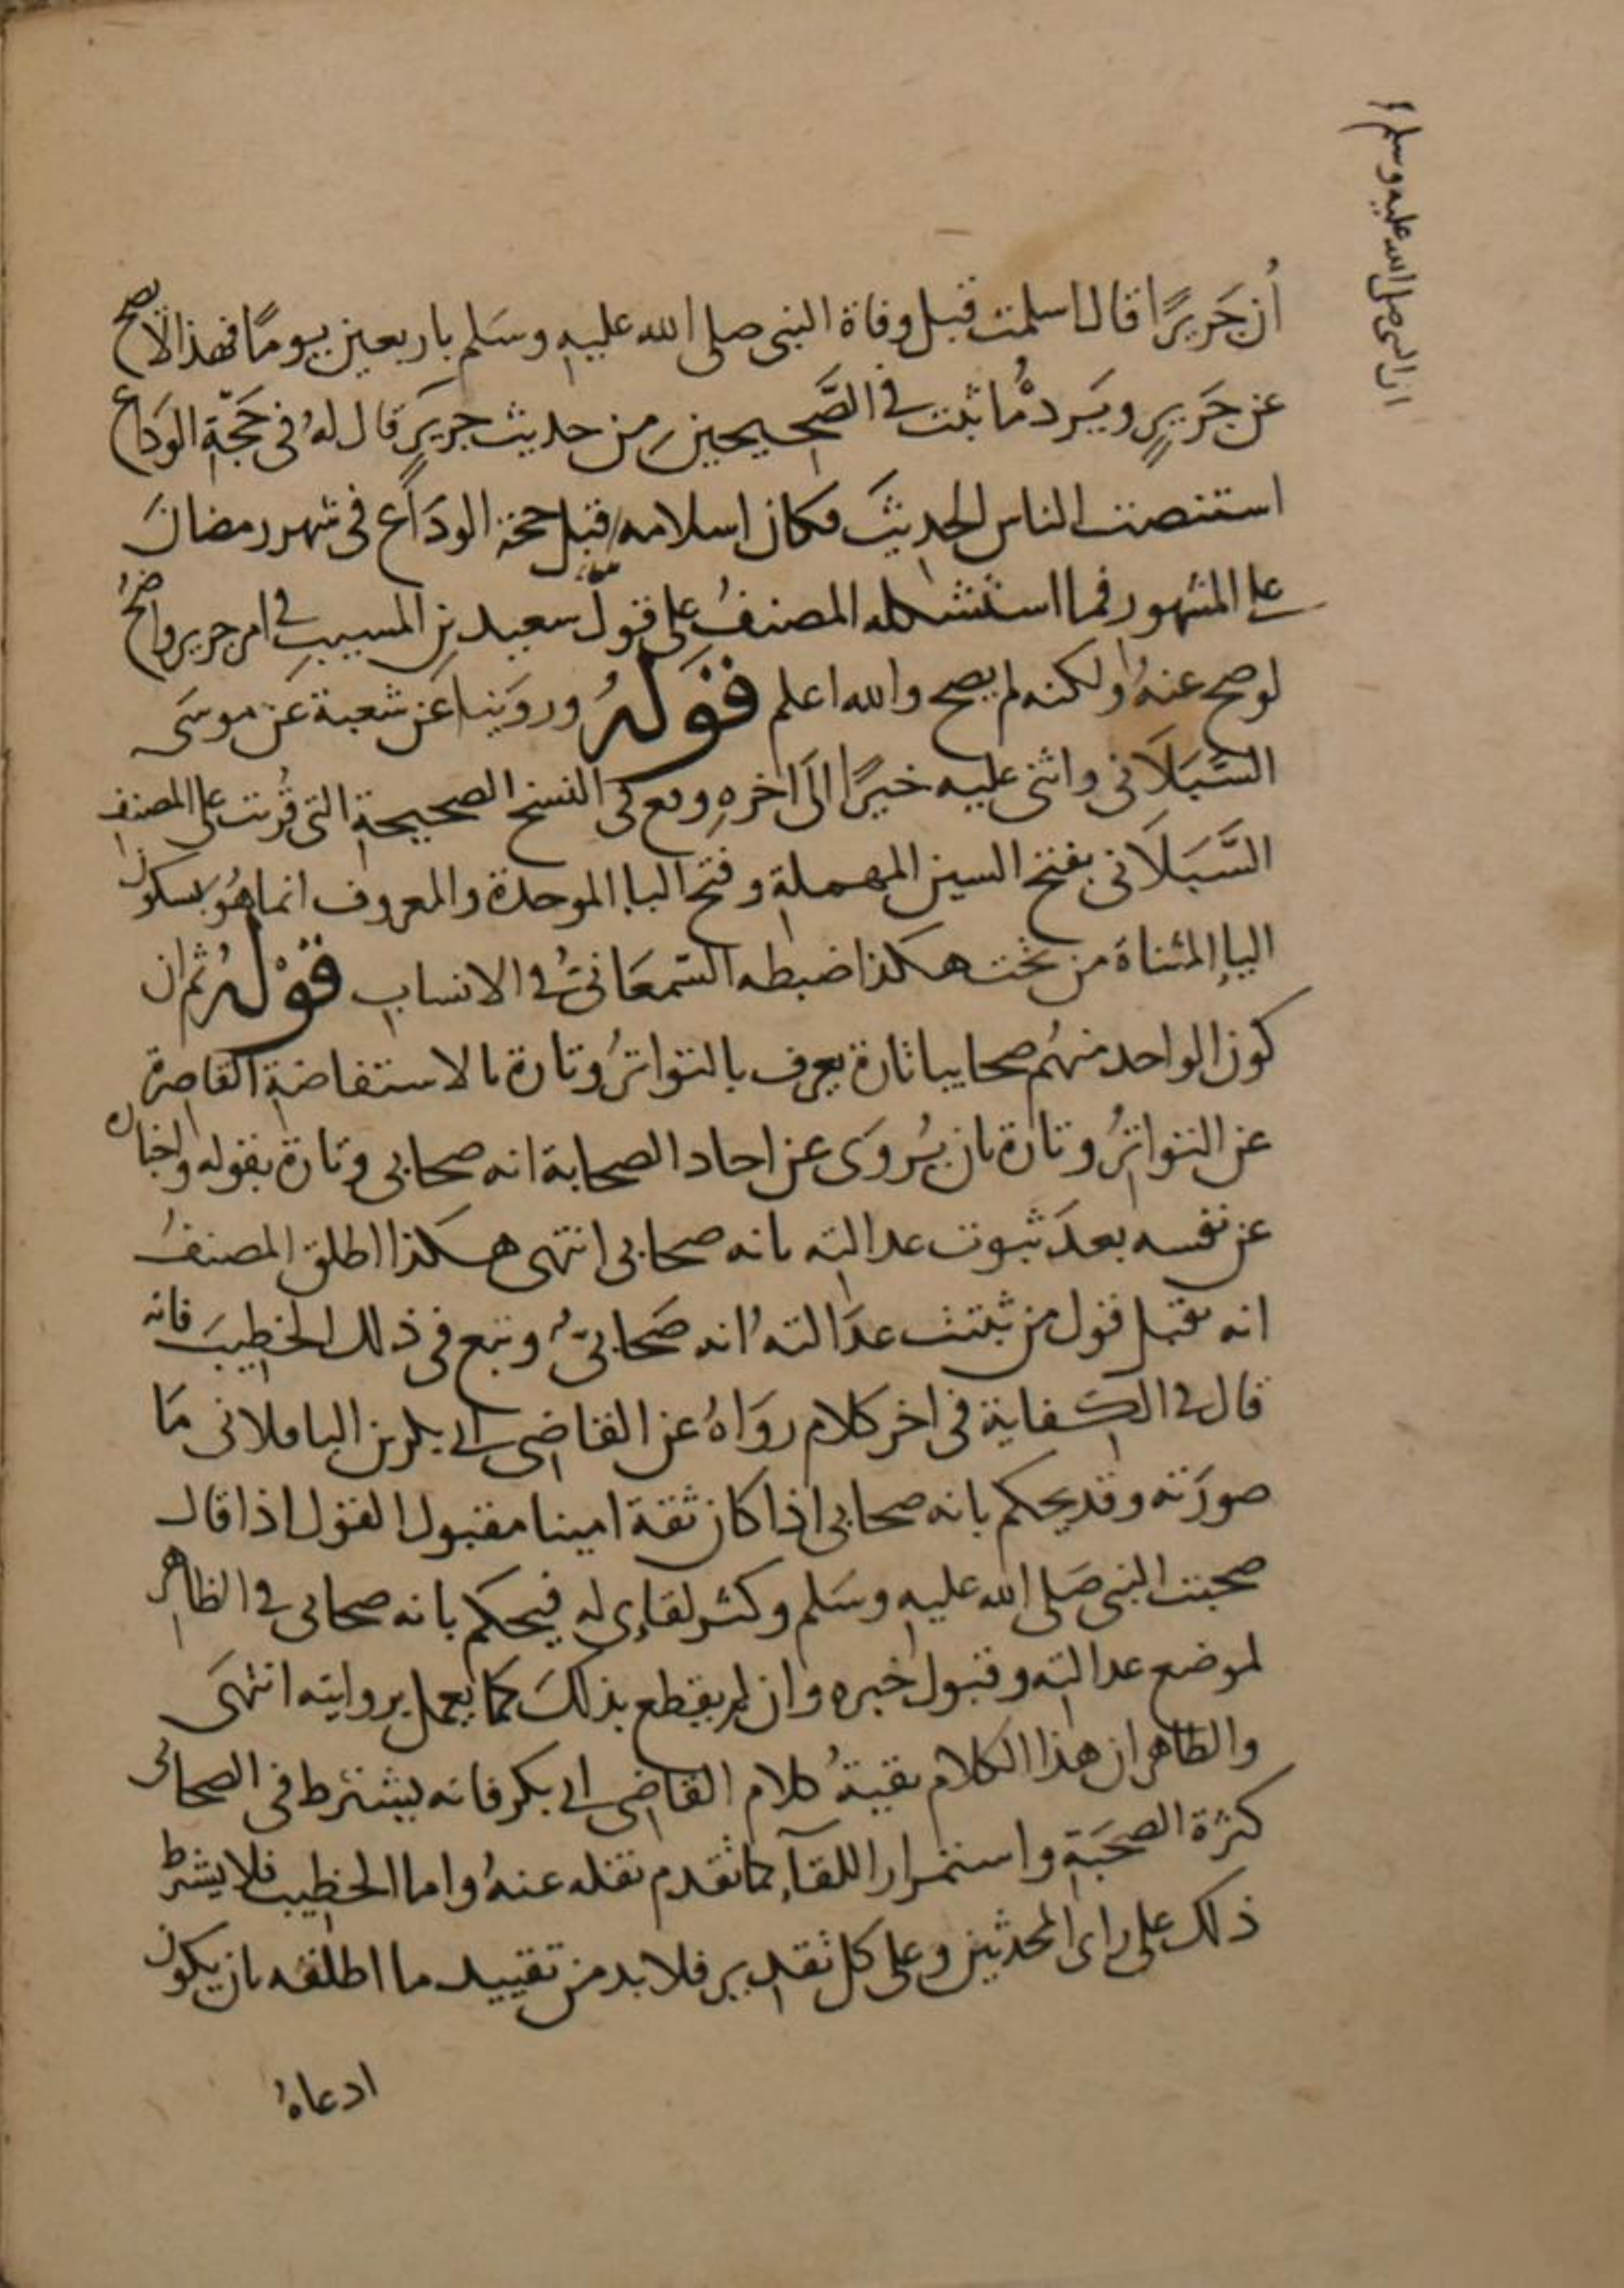 ان النبي صلى الله عليه وسلم
أن جَريرًا قال اسلمت قبل وفاة النبي صلى الله عليه وسَلم باربعين يومًا فهذا لا يصح
عن جَريرٍ ويَرده ما ثبت في الصَّحيحين من حديث جريرٍ قال لهُ في حَجّة الوَدَاع
استنصت الناس الحديثَ فكان اسلامه قبل حجة الودَاع في شهر رمضانَ
على المشهور فما استشكله المصنفُ على قول سعيد بن المسيبِ في امر جرير واضحُ
لو صح عنهُ ولكنه لم يصح والله اعلم قَوَلهُ وروَينا عَن شعبة عَن موسَى
السَّبَلَاني واثنى عليه خيرًا الَى اخرهِ وقع في النسخ الصحيحة التي قُرئت على المصنفِ
السَّبَلَاني بفتح السين المهملةِ وفتح الباء الموحدة والمعروف انما هُو بسكون
الياءِ المثناة من تحت هكذا ضبطه السّمعَانيُّ في الانساب قوْلهُ ثم ان
كون الواحد منهُم صحابيا تارة يعرف بالتواترُ وتارة بالاستفاضةِ القاصرة
عن التواترُ وتارة بان يُروَى عن احاد الصحابة انه صحابي وتارة بقوله واخباره
عن نفسه بعدَ ثبوت عدالته بانه صحابي انتهى هكذا اطلق المصنفُ
انه يقبل قول من ثبتت عدَالتهُ انه صَحَابيُّ وتبع في ذلك الخطيبَ فانه
قال في الكفاية في اخر كلام روَاهُ عن القاضي ابي بكر بن الباقلاني مَا
صورَته وقد يحكم بانه صحابي اذا كان ثقة امينا مقبول القول اذا قال
صحبت النبي صَلى الله عليه وسَلم وكثر لقاءِي له فيحكم بانه صحابي في الظاهر
لموضع عدالته وقبول خبره وان لم يقطع بذلكَ كما يعمل بروايته انتهَى
والظاهر ان هذا الكلام بقيةُ كلام القاضي ابي بكر فانه يشترط في الصحابي
كثرة الصحَبَةِ واستمرار اللقآءِ كما تقدم نقله عنهُ واما الخطيب فلا يشترط
ذلك على راى المحدثين وعلى كل تقدير فلا بد من تقييد ما اطلقه بان يكون
ادعاهُ